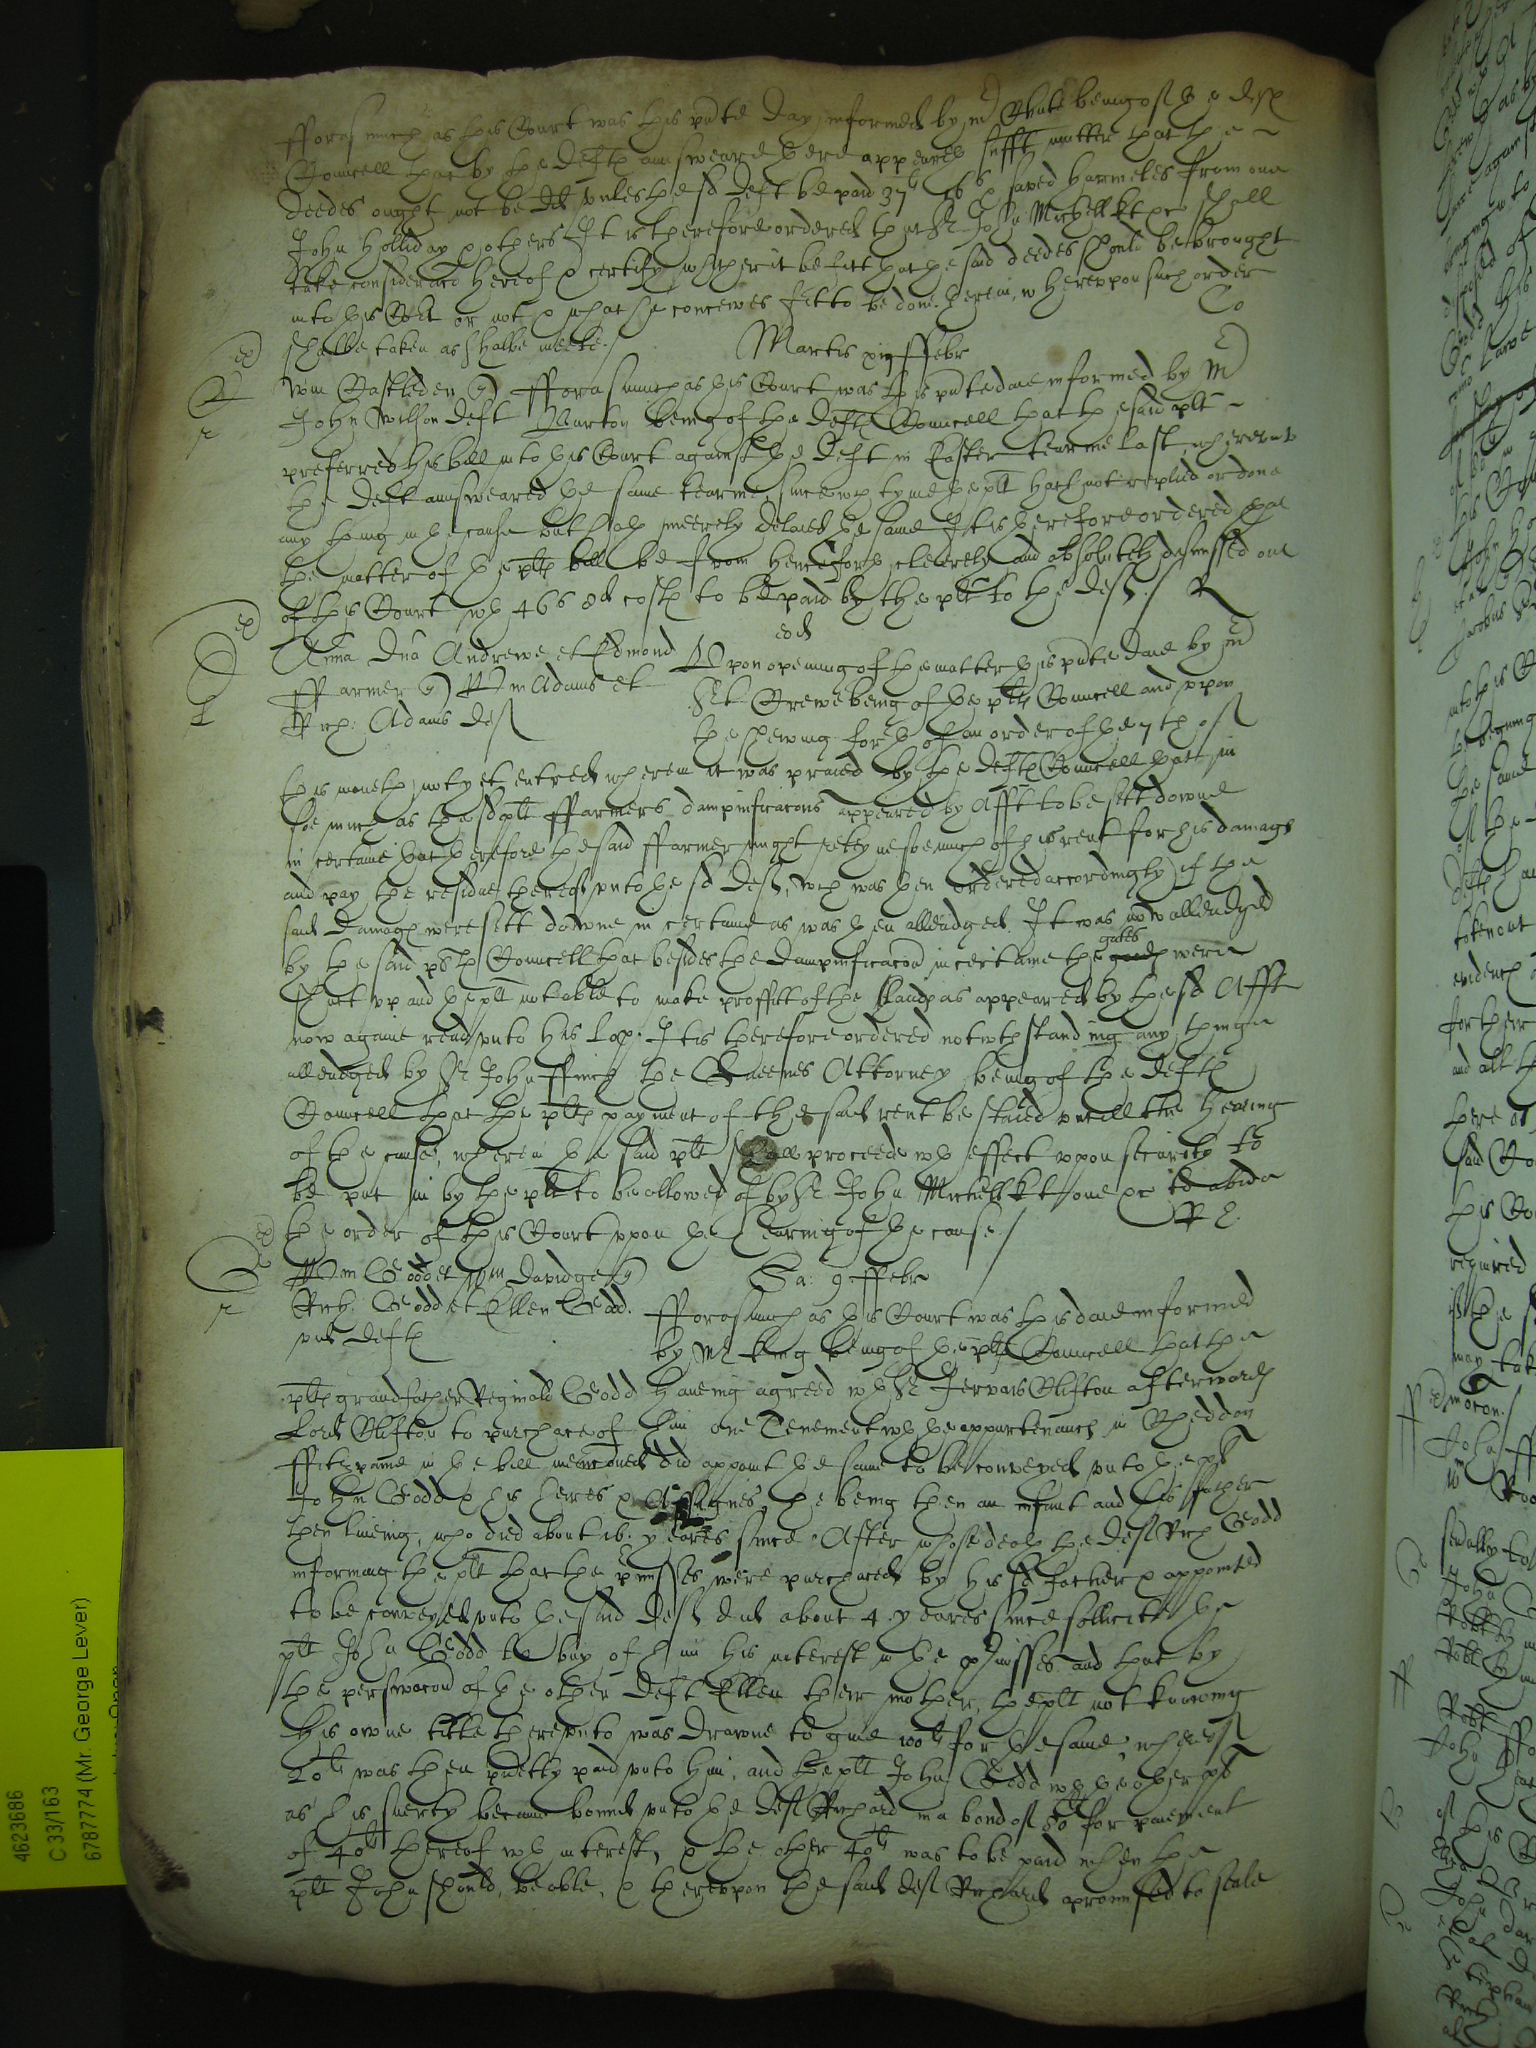 fforasmuch as this Court was this pnte day informed by mr Chute being of the defts
Councell that by the defts aunsweare here appeareth sufft matter that the
deedes ought not be dd vnles the sd deft be paid 37li 16s & saved harmeles from one
John Holliday & others It is therefore ordered that Sr John Michell kt &c shall
take consideracon hereof & certify whither it be fitt that the said deedes should be brought
into this Cort or not & what he conceives fitt to be done herein, wherevpon such order
shalbe taken as shalbe meete./
Martis ffebr
Wm Castleden q fforasmuch as this Court was this pnte daie informed by Mr
John Wilson deft Barton being of the defts Councell that the said plt
preferred his bill into this Court against the deft in Easter tearme last, wherevnto
the deft aunsweared the same tearme, since wch tyme the plt hath not replied or done
any thing in the cause but hath meerely delaied the same It is therefore ordered that
the matter of the plts bill be from henceforth cleerely and absolutely dismissed out
of this Court wth 46s 8d costs to be paid by the plt to the deft./ R
eod
Anna Dna Andrewe et Edmond Vpon opening of the matter this pnte daie by mr
ffarmer q Wm Adams et Crewe being of the plts Councell and vpon
Ric: Adams deft the shewing forth of an order of the 7th of
this moneth not yet entred wherein it was praied by the defts Councell that in
soe much as the sd plt ffarmers dampnificacons appeared by Afft to be sett downe
in certaine that therefore the said ffarmer might reteyne soe much of his rent for his damage
and pay the residue thereof vnto the sd deft, wch was then ordered accordingly if the
said damags were sett downe in certaine as was then alleadged. It was now alleadged
by the said plts Councell that besides the dampnificacon in certaine the gates were
shutt vp and the plt not able to make proffitt of the lands as appeared by the sd Afft
now againe read vnto his Lop. It is therefore ordered notwthstanding any thinge
alleadged by Sr John ffinch the Queenes Attorney being of the defts
Councell that the plts payment of the said rent be staied vntill the hearing
of the cause, wherein the said plt shall proceede wth effect vpon security to
be put in by the plt to be allowed of by Sr John Michell kt one &c to abide
the order of this Court vpon the hearing of the cause./
Wm Godd et Wm Davidge q Sa: 9 ffebr
Rich: Godd et Ellen Godd. fforasmuch as this Court was this daie informed
vid defts by Mr king being of the plts Councell that the
plts grandfather Reginald Godd haveing agreed wth Sr Jervais Clifton afterwards
Lord Clifton to purchase of him one Tenement wth the appurtenances in Cheddon
ffitzpaine in the bill menconed did appoint the same to be conveyed vnto the plt
John Godd & his heires & Assignes, he being then an infant and his father
then liveing, who died about 16. yeares since. After whose death the deft Rich Godd
informing the plt that the pmisses were purchased by his sd father & appointed
to be conveyed vnto the said deft did about 4 yeares since sollicitt the
plt John Godd to buy of him his interest in the pmisses and that by
the perswacon of the other deft Ellen their mother, the plt not knowing
his owne title therevnto was drawne to give 100li for the same, whereof
20li was then pntly paid vnto him, and the plt John Godd wth the other plt
as his suerty became bound vnto the deft Richard in a bond of 80li for paiement
of 40li thereof wth interest, & the other 40li was to be paid when the
plt John should be able, & therevpon the said deft Richard promised to seale
4623686
C 33/163
6787774 (Mr. George Lever)